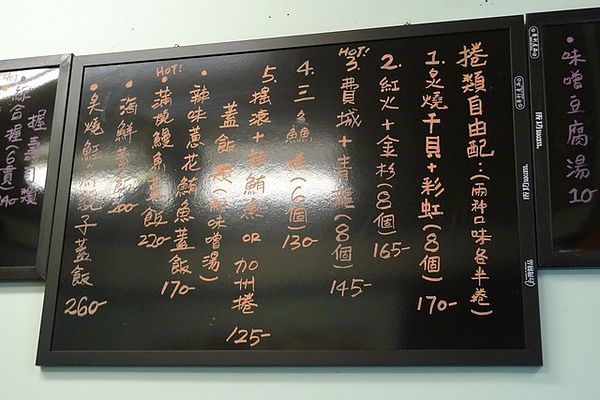 味噌豆腐湯 10-
捲類自由配：(兩種口味各半捲)
1. 炙燒干貝+彩虹(8個) 170-
2. 紅火+金杉(8個) 165-
HOT!
3. 費城+青龍(8個) 145-
4. 三 (6個) 130-
5. 搖滾+鮪魚 or 加州捲 125-
蓋飯類(附味噌湯)
•辣味蔥花鮪魚蓋飯 170-
HOT!
•蒲燒鰻魚蓋飯 220-
•海鮮蓋飯 200-
•炙燒魟魚子蓋飯 260-
握壽司類
HOT
•綜合握(6貫)